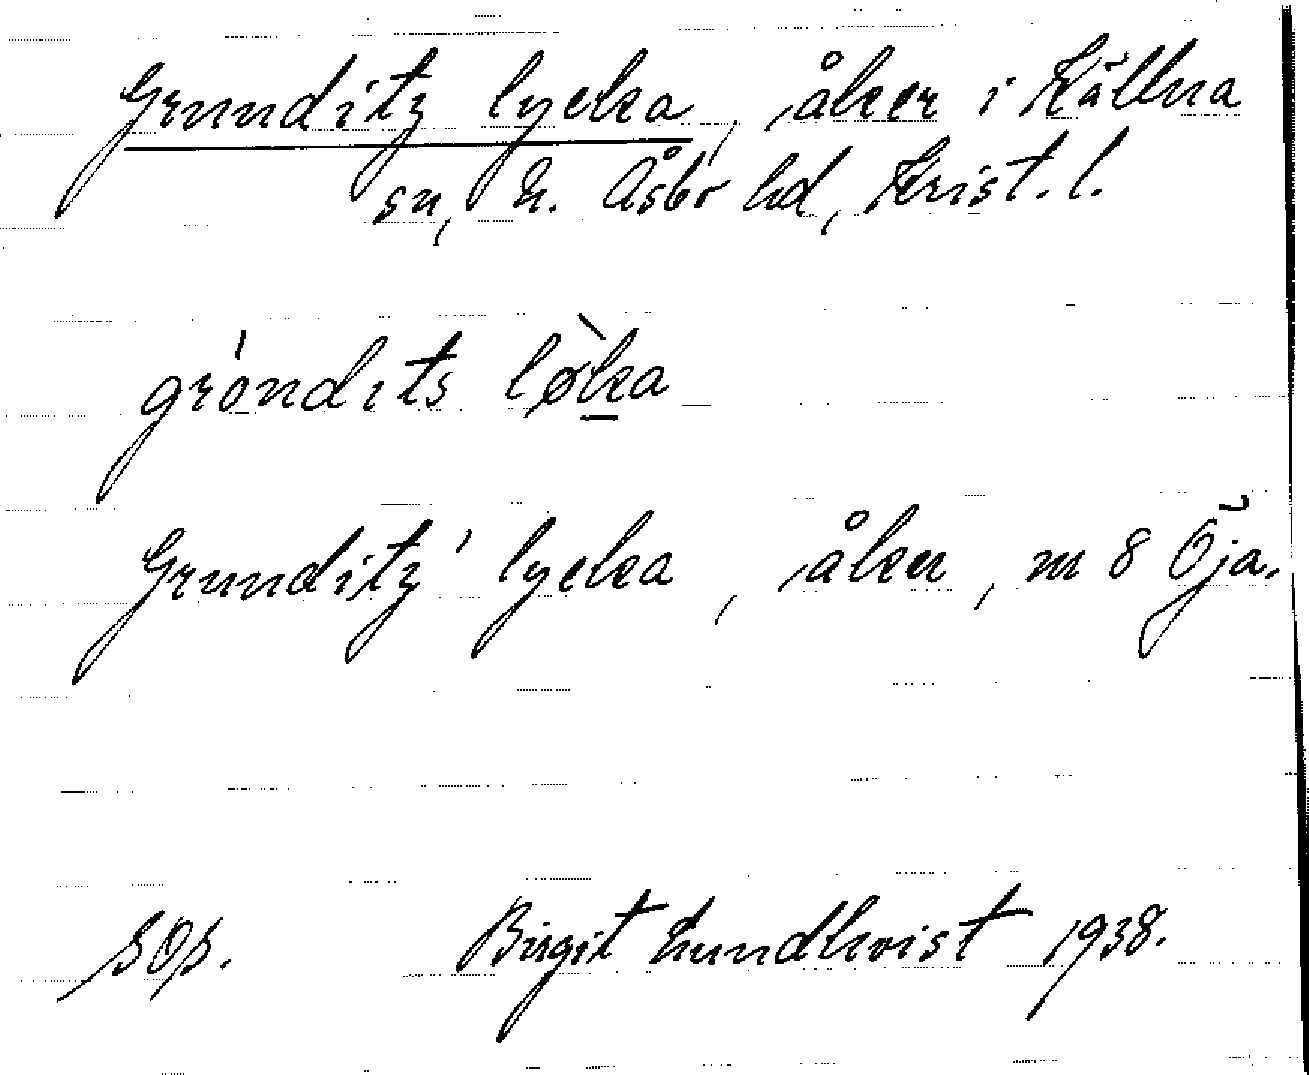 Grunditz lycka, åker i Källna
sn, N. Åsbo hd, Krist. l.
gróndits lø̀ka
Grunditz' lycka, åker, m 8 Öja.
SOp. Birgit Lundkvist 1938.